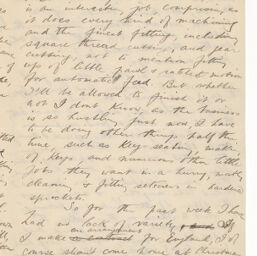 is an interesting job, comprising, as
it does every kind of machining
and the finest fitting, including
square thread cutting, and gear
cutting, not to mention fitting
up a little pawl & ratchet motion
for automatic feed. But whether
I'll be allowed to finish it or
not I don't know, as the business
is so hustling just now I have
to be doing other things half the
time, such as key-seating, making
of keys, and numerous other little
jobs they want in a hurry, making
cleaning & fitting in hardened
sprockets.
So for the past week I have
had no lack of variety. If
an arrangement
I make for England, I'd of
course shan't come home at Christmas